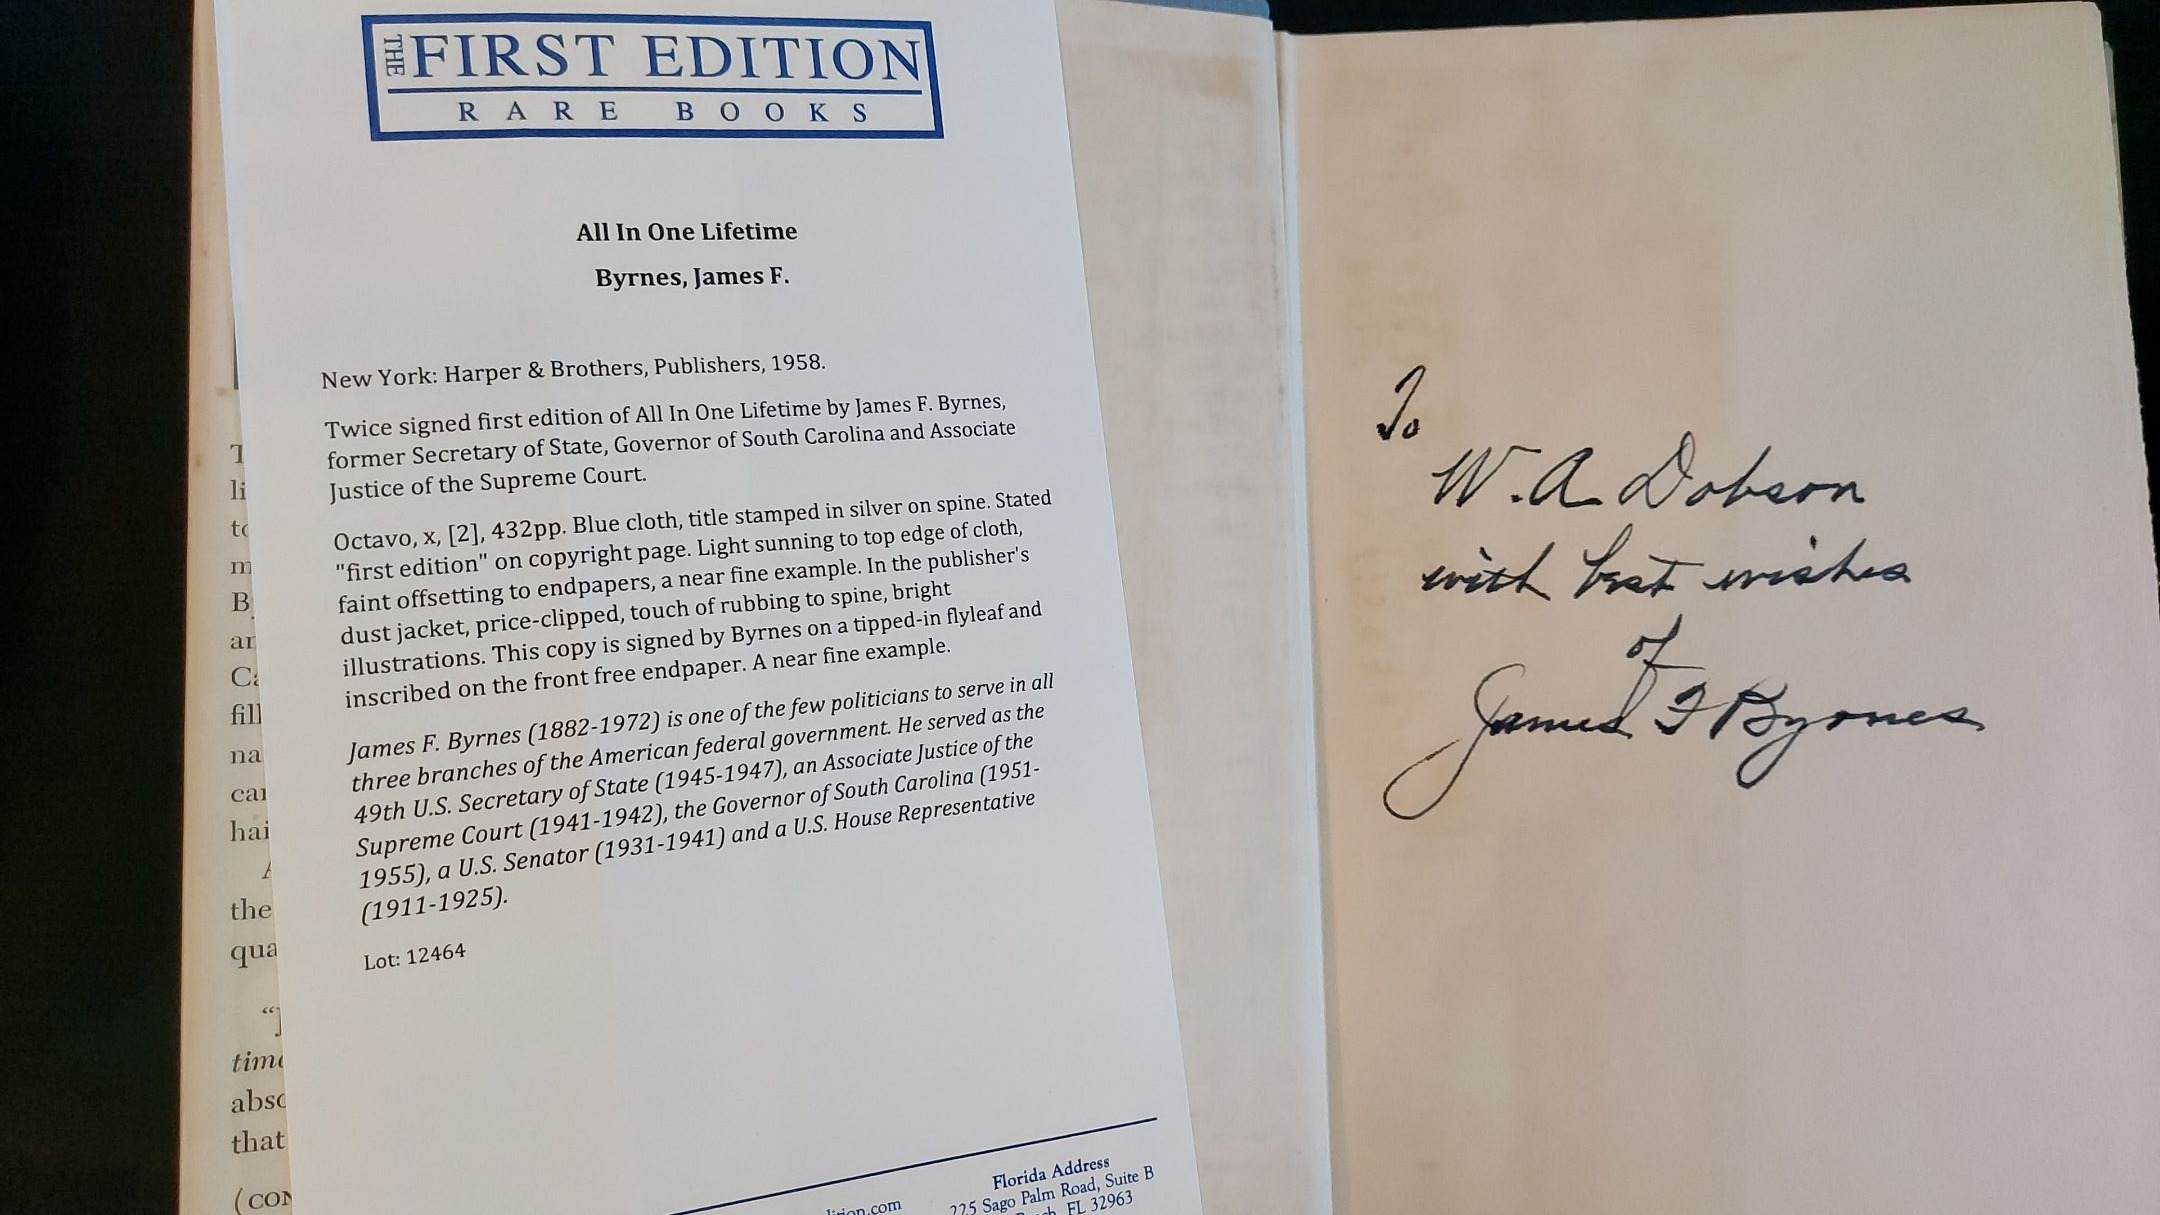 THE FIRST EDITION
RARE BOOKS
All In One Lifetime
Byrnes, James F.
New York: Harper & Brothers, Publishers, 1958.
Twice signed first edition of All In One Lifetime by James F. Byrnes,
former Secretary of State, Governor of South Carolina and Associate
Justice of the Supreme Court.
Octavo, x, [2], 432pp. Blue cloth, title stamped in silver on spine. Stated
"first edition" on copyright page. Light sunning to top edge of cloth,
faint offsetting to endpapers, a near fine example. In the publisher's
dust jacket, price-clipped, touch of rubbing to spine, bright
illustrations. This copy is signed by Byrnes on a tipped-in flyleaf and
inscribed on the front free endpaper. A near fine example.
James F. Byrnes (1882-1972) is one of the few politicians to serve in all
three branches of the American federal government. He served as the
49th U.S. Secretary of State (1945-1947), an Associate Justice of the
Supreme Court (1941-1942), the Governor of South Carolina (1951-
1955), a U.S. Senator (1931-1941) and a U.S. House Representative
(1911-1925).
Lot: 12464
Florida Address
225 Sago Palm Road, Suite B
FL 32963
the
time
that
To
W. A Dobson
with best wishes
of
James F Byrnes